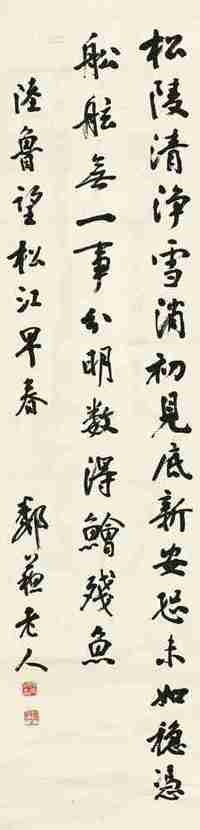 松陵清淨雪消初見底新安恐未如穩憑
舩舷無一事分明数得鱠殘魚
陸魯望松江早春
鄰蘇老人